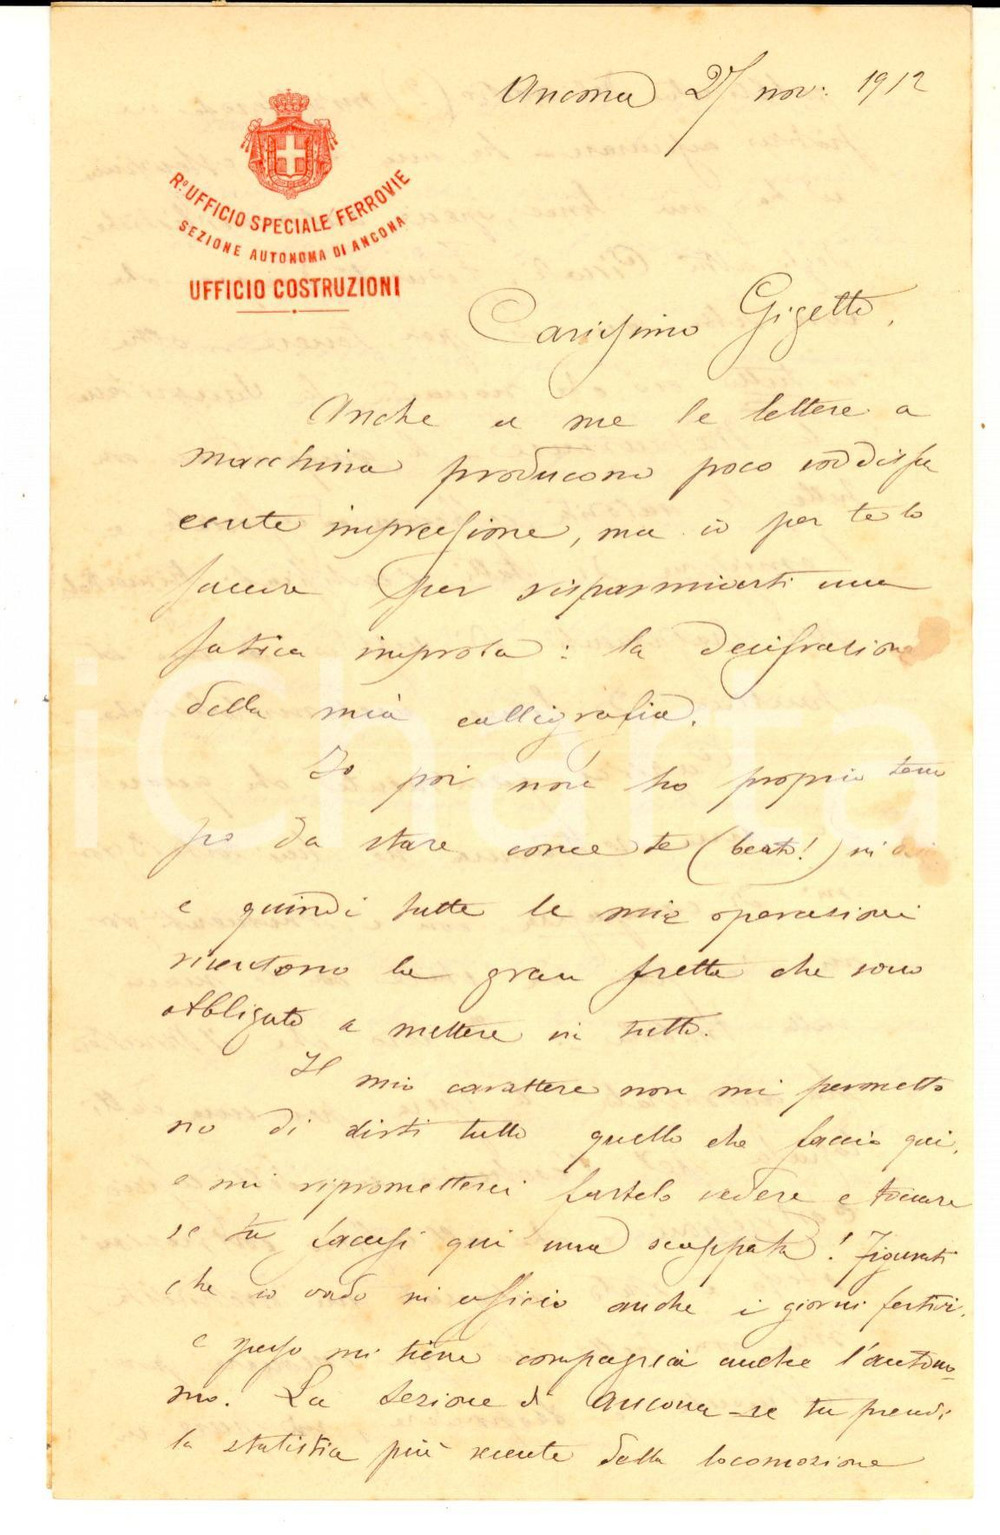 Ancona 27 nov. 1912
R.º UFFICIO SPECIALE FERROVIE
SEZIONE AUTONOMA DI ANCONA
UFFICIO COSTRUZIONI
Carissimo Gigetto,
Anche a me le lettere a
macchina producono poco soddisfa
cente impressione, ma io per te lo
faccio per risparmiarti una
fatica improba: la decifrazione
della mia calligrafia.
Io poi non ho proprio tem
po da stare come te (beato!)
e quindi tutte le mie operazioni
risentono la gran fretta che sono
obbligato a mettere in tutto.
Il mio carattere non mi permette
di dirti tutto quello che faccio qui,
e mi riprometterei fartelo vedere e toccare
se tu facessi qui una scappata! Figurati
che io vado in ufficio anche i giorni festivi,
e spesso mi tiene compagnia anche l'autono-
mo. La Sezione di Ancona - se tu prendi
la statistica più recente della locomozione
iCharta